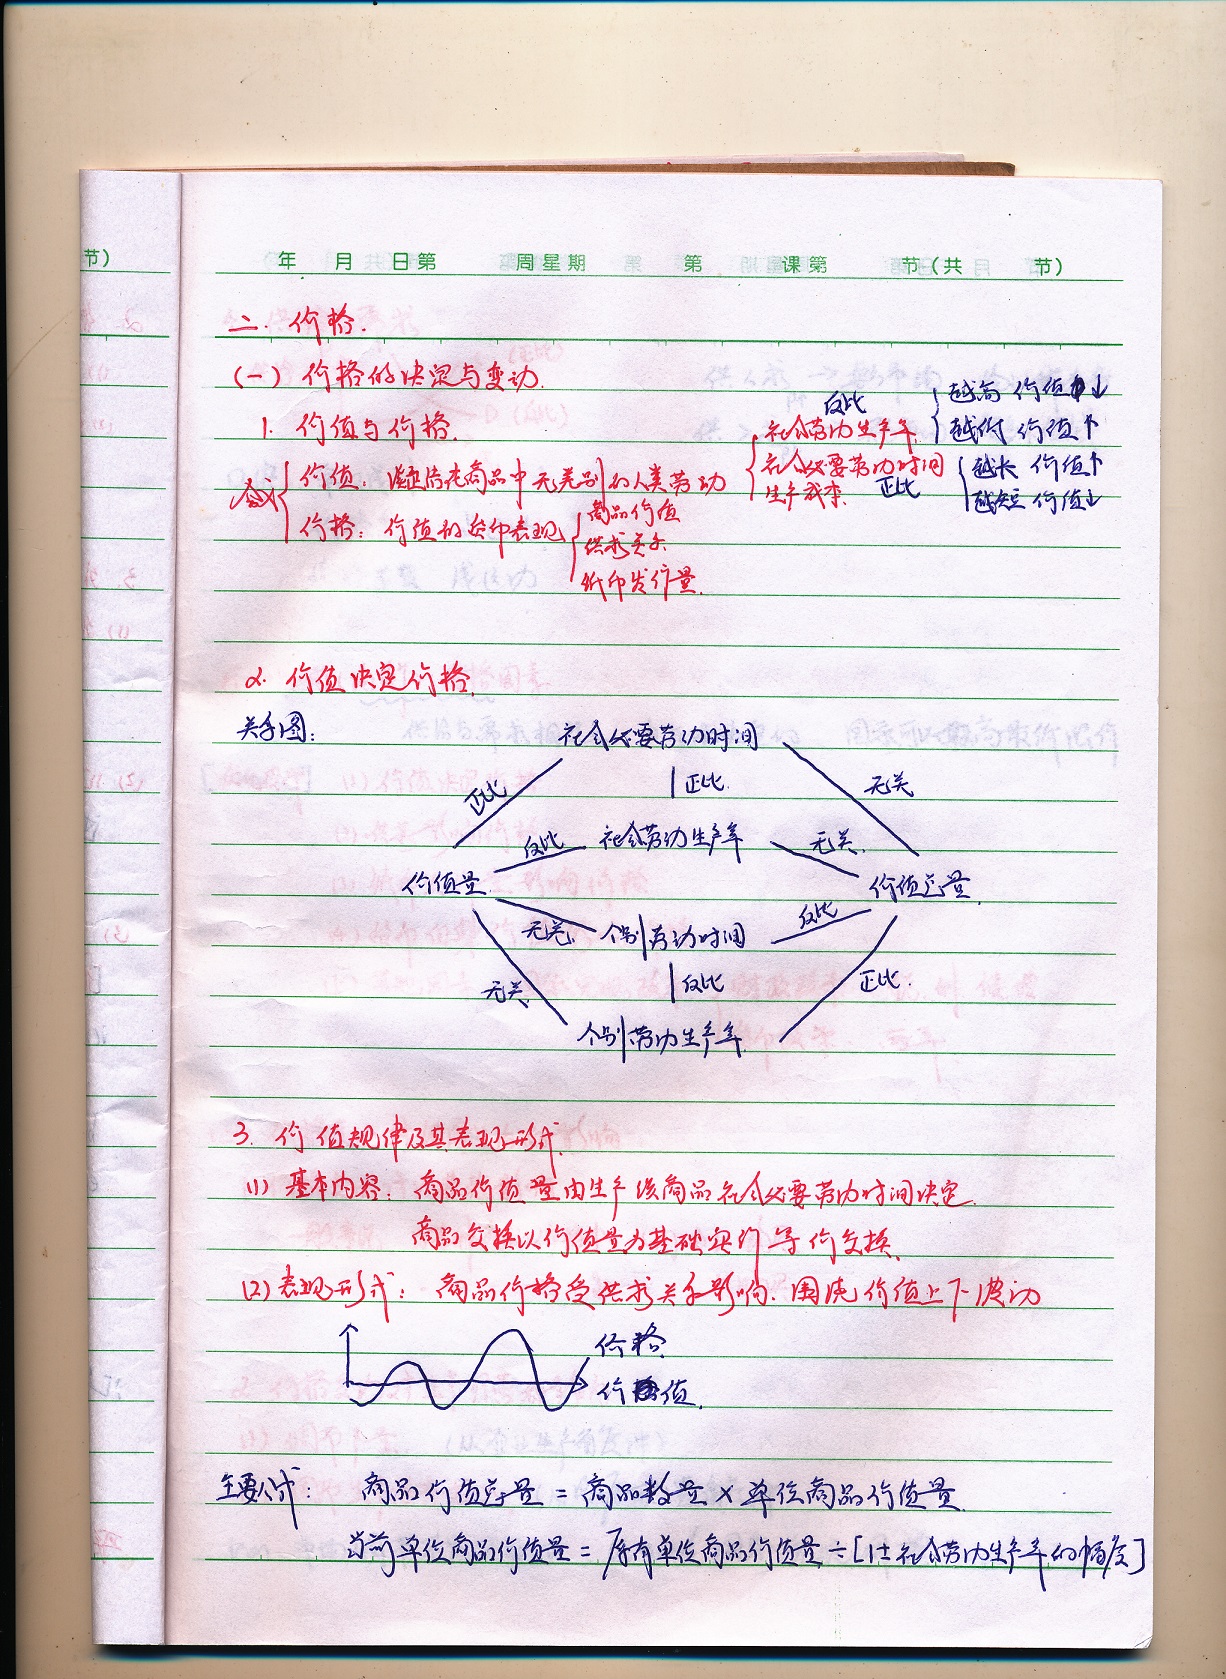 节)
年 月 日第 周星期 第 课第 节(共 节)
二. 价格.
(一) 价格的决定与变动.
1. 价值与价格.
价值: 凝结在商品中无差别的人类劳动
社会劳动生产率 反比
越高 价值↓
越低 价值↑
社会必要劳动时间 正比
越长 价值↑
越短 价值↓
生产成本.
价格: 价值的货币表现
商品价值
供求关系
纸币发行量.
2. 价值决定价格.
关系图:
社会必要劳动时间
正比 正比. 无关
反比 社会劳动生产率 无关.
价值量. 价值总量.
无关. 个别劳动时间 反比
无关. 反比 正比.
个别劳动生产率.
3. 价值规律及其表现形式.
(1) 基本内容: 商品价值量由生产该商品社会必要劳动时间决定.
商品交换以价值量为基础实行等价交换.
(2) 表现形式: 商品价格受供求关系影响. 围绕价值上下波动
价格.
价值.
主要公式: 商品价值总量 = 商品数量 × 单位商品价值量.
当前单位商品价值量 = 原有单位商品价值量 ÷ [1±社会劳动生产率的幅度]